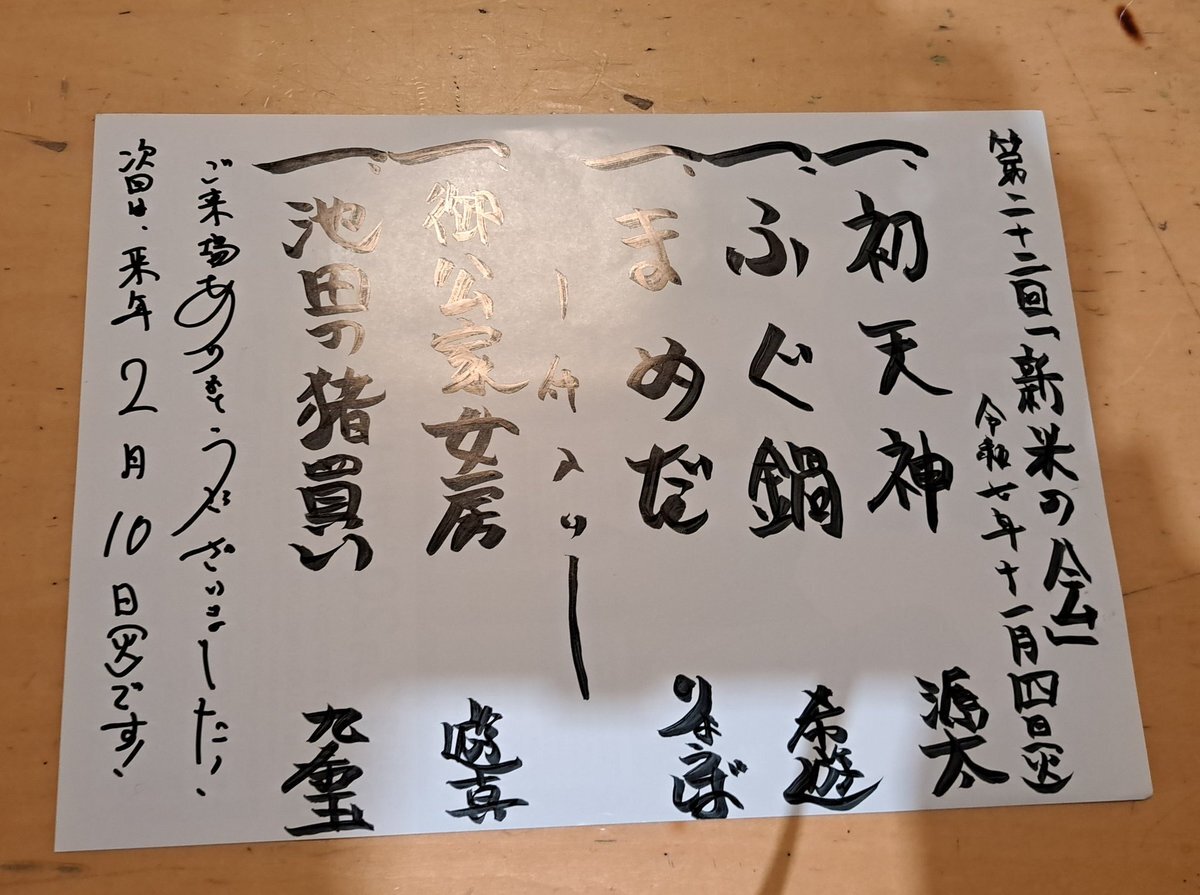 第二十二回「新米の会」
令和七年十一月四日(火)
一、初天神 源太
一、ふぐ鍋 希遊
一、まめだ
ー仲入りー
一、御公家女房 遊真
一、池田の猪買い
ご来場ありがとうございました！
次回は、来年2月10日(火)です！